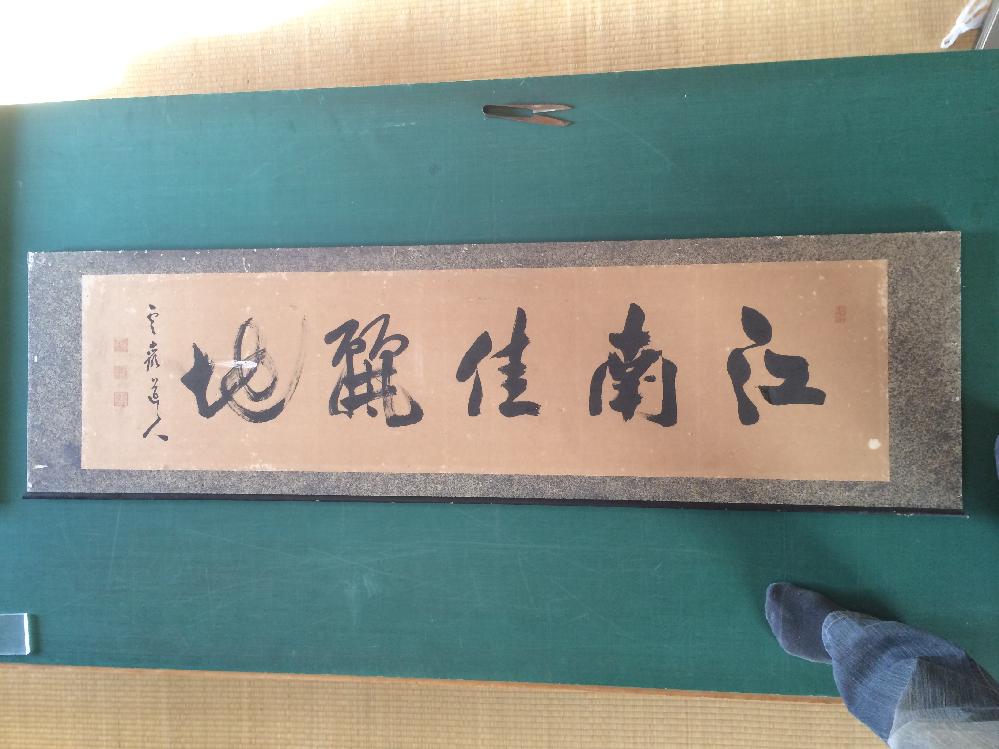 江南佳麗地
道人